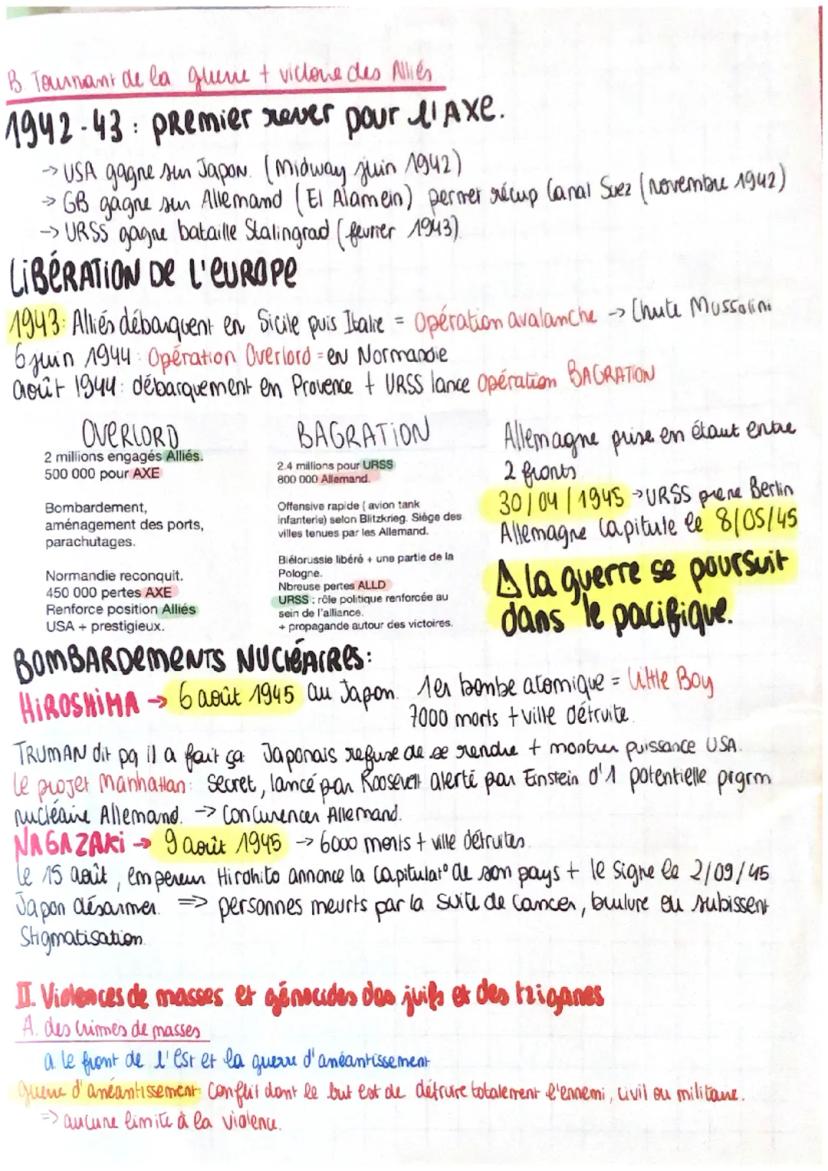 B. Tournant de la guerre + victoire des Alliés
1942-43 : premier rever pour l'AXE.
-> USA gagne sur Japon. (Midway juin 1942)
-> GB gagne sur Allemand (El Alamein) permet récup Canal Suez (novembre 1942)
-> URSS gagne bataille Stalingrad (fevrier 1943)
LIBÉRATION DE L'EUROPE
1943: Alliés débarquent en Sicile puis Italie = Opération avalanche -> Chute Mussolini
6 juin 1944 : Opération Overlord = en Normandie
août 1944 : débarquement en Provence + URSS lance Opération BAGRATION
OVERLORD
2 millions engagés Alliés.
500 000 pour AXE
Bombardement,
aménagement des ports,
parachutages.
Normandie reconquit.
450 000 pertes AXE
Renforce position Alliés
USA + prestigieux.
BAGRATION
2.4 millions pour URSS
800 000 Allemand.
Offensive rapide ( avion tank
infanterie) selon Blitzkrieg. Siège des
villes tenues par les Allemand.
Biélorussie libéré + une partie de la
Pologne.
Nbreuse pertes ALLD
URSS : rôle politique renforcée au
sein de l'alliance.
+ propagande autour des victoires.
Allemagne prise en étaut entre
2 fronts
30/04/1945 -> URSS prene Berlin
Allemagne Capitule le 8/05/45
⚠ la guerre se poursuit
dans le pacifique.
BOMBARDEMENTS NUCLÉAIRES:
HIROSHIMA -> 6 août 1945 au Japon. 1er bombe atomique = Little Boy
7000 morts + ville détruite
TRUMAN dit pq il a fait ça Japonais refuse de se rendre + montrer puissance USA.
Le projet Manhattan: secret, lancé par Roosevelt alerté par Einstein d'1 potentielle prgrm
nucléaire Allemand. -> Concurencer Allemand.
NAGAZAKI -> 9 août 1945 -> 6000 morts + ville détruites.
Le 15 août, empereur Hirohito annonce la capitulat° de son pays + le signe le 2/09/45
Japon désarmer. => personnes meurts par la suite de cancer, brulure ou subissent
Stigmatisation.
II. Violences de masses et génocides des juifs et des tziganes
A. des crimes de masses
a. le front de l'Est et la guerre d'anéantissement
guerre d'anéantissement: Conflit dont le but est de détruire totalement l'ennemi, civil ou militaire.
=> aucune limite à la violence.